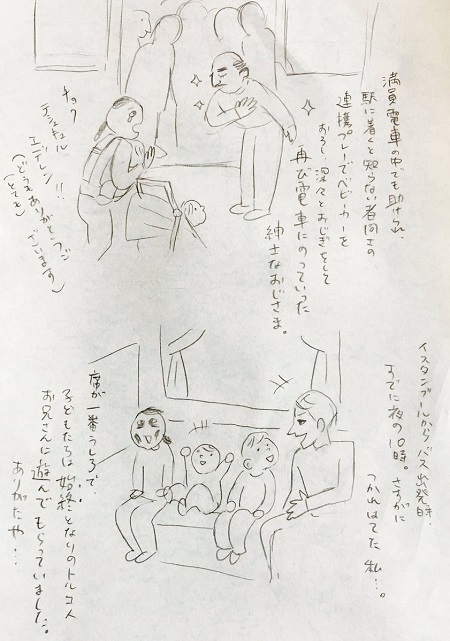 満員電車の中でも助けられ、
駅に着くと知らない者同士の
連携プレーでベビーカーを
おろし、深々とおじぎをして
再び電車にのっていった
紳士なおじさま。
チョク
テシェキュル
エデレン!!
(どうもありがとうご
ざいます)
(とても)
イスタンブールからバス出発時、
すでに夜の10時。さすがに
つかれはてた私…。
席が一番うしろで、
子どもたちは始終となりのトルコ人
お兄さんに遊んでもらっていました。
ありがたや…